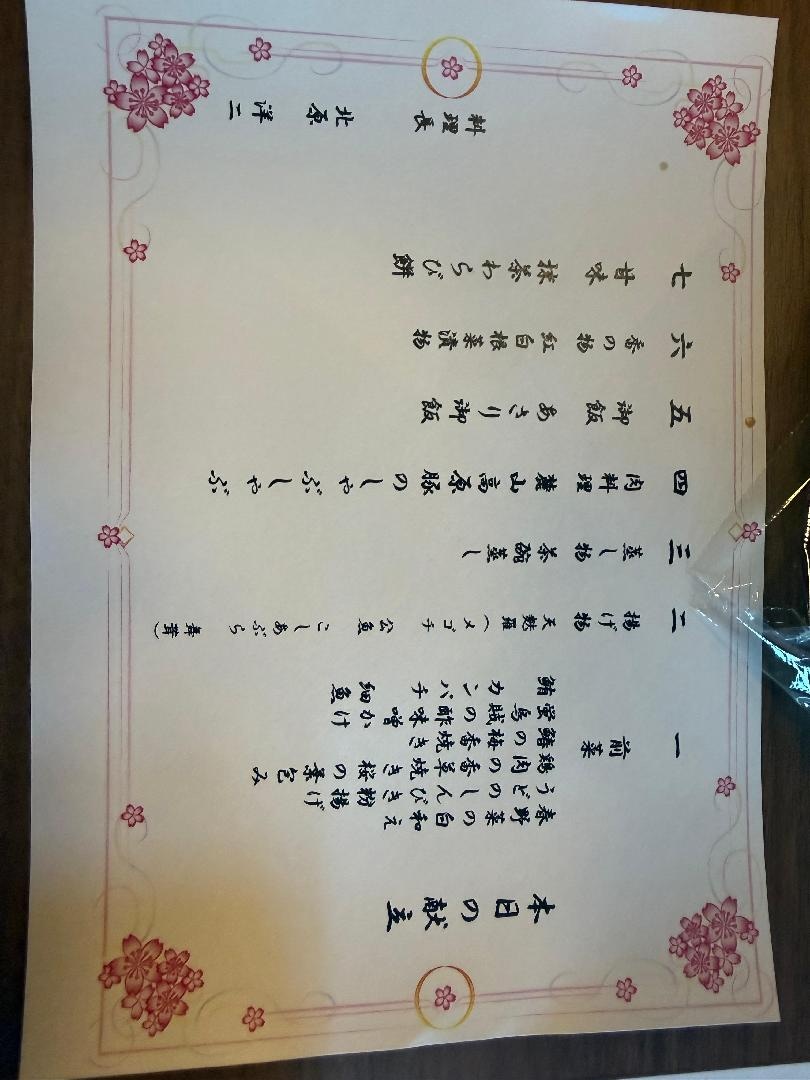 本日の献立
一 前菜
春野菜の白和え
うどのしんびき粉揚げ
鶏肉の香草焼き 桜の葉包み
鰆の梅香焼き
蛍烏賊の酢味噌かけ
鮪 カンパチ 細魚
二 揚げ物 天麩羅（メゴチ 公魚 こしあぶら 舞茸）
三 蒸し物 茶碗蒸し
四 肉料理 麓山高原豚のしゃぶしゃぶ
五 御飯 あさり御飯
六 香の物 紅白根菜漬物
七 甘味 抹茶わらび餅
料理長 北原 洋二